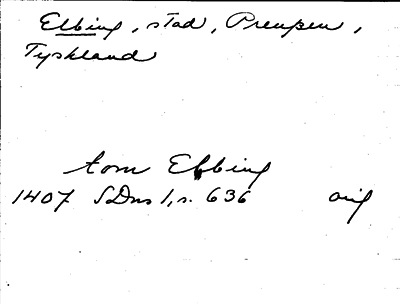 Elbing, stad, Preussen,
Tyskland
tom Elbing
1407 SDns 1, s. 636 orig